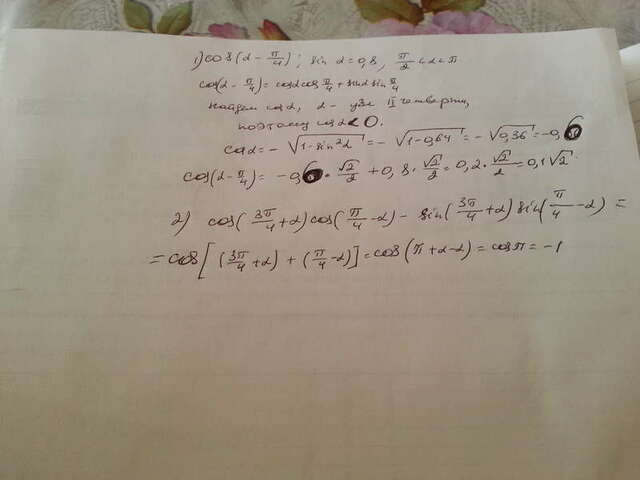 1) cos(α - π/4); sin α = 0,8, π/2 < α < π
cos(α - π/4) = cosα cos π/4 + sinα sin π/4
найдем cosα, α - угол II четверти,
поэтому cosα < 0.
cosα = - √(1-sin²α) = - √(1-0,64) = - √0,36 = -0,6
cos(α - π/4) = -0,6 · √2/2 + 0,8 · √2/2 = 0,2 · √2/2 = 0,1√2.
2) cos(3π/4 + α) cos(π/4 - α) - sin(3π/4 + α) sin(π/4 - α) =
= cos[(3π/4 + α) + (π/4 - α)] = cos(π + α - α) = cosπ = -1